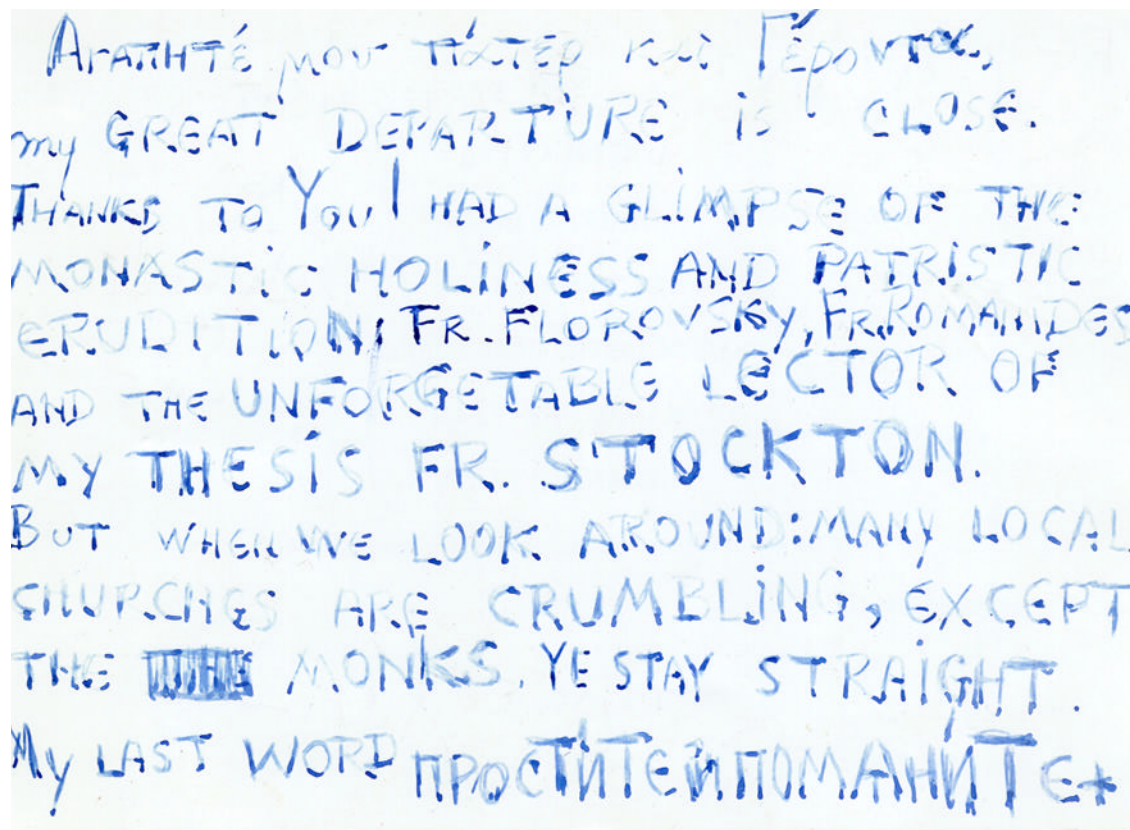 Αγαπητέ μου πάτερ και Γέροντα,
my GREAT DEPARTURE is CLOSE.
THANKS TO YOU I HAD A GLIMPSE OF THE
MONASTIC HOLINESS AND PATRISTIC
ERUDITION, FR. FLOROVSKY, FR. ROMANIDES
AND THE UNFORGETABLE LECTOR OF
MY THESIS FR. STOCKTON.
BUT WHEN WE LOOK AROUND: MANY LOCAL
CHURCHES ARE CRUMBLING, EXCEPT
THE MONKS. YE STAY STRAIGHT.
My LAST WORD ПРОСТИТЕ И ПОМАНИТЕ+